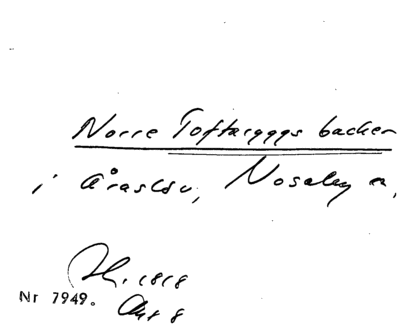 Norre Toftaryggs backen
i Åraslöv, Nosaby sn,
Sk. 1818
Nr 7949. Akt 8